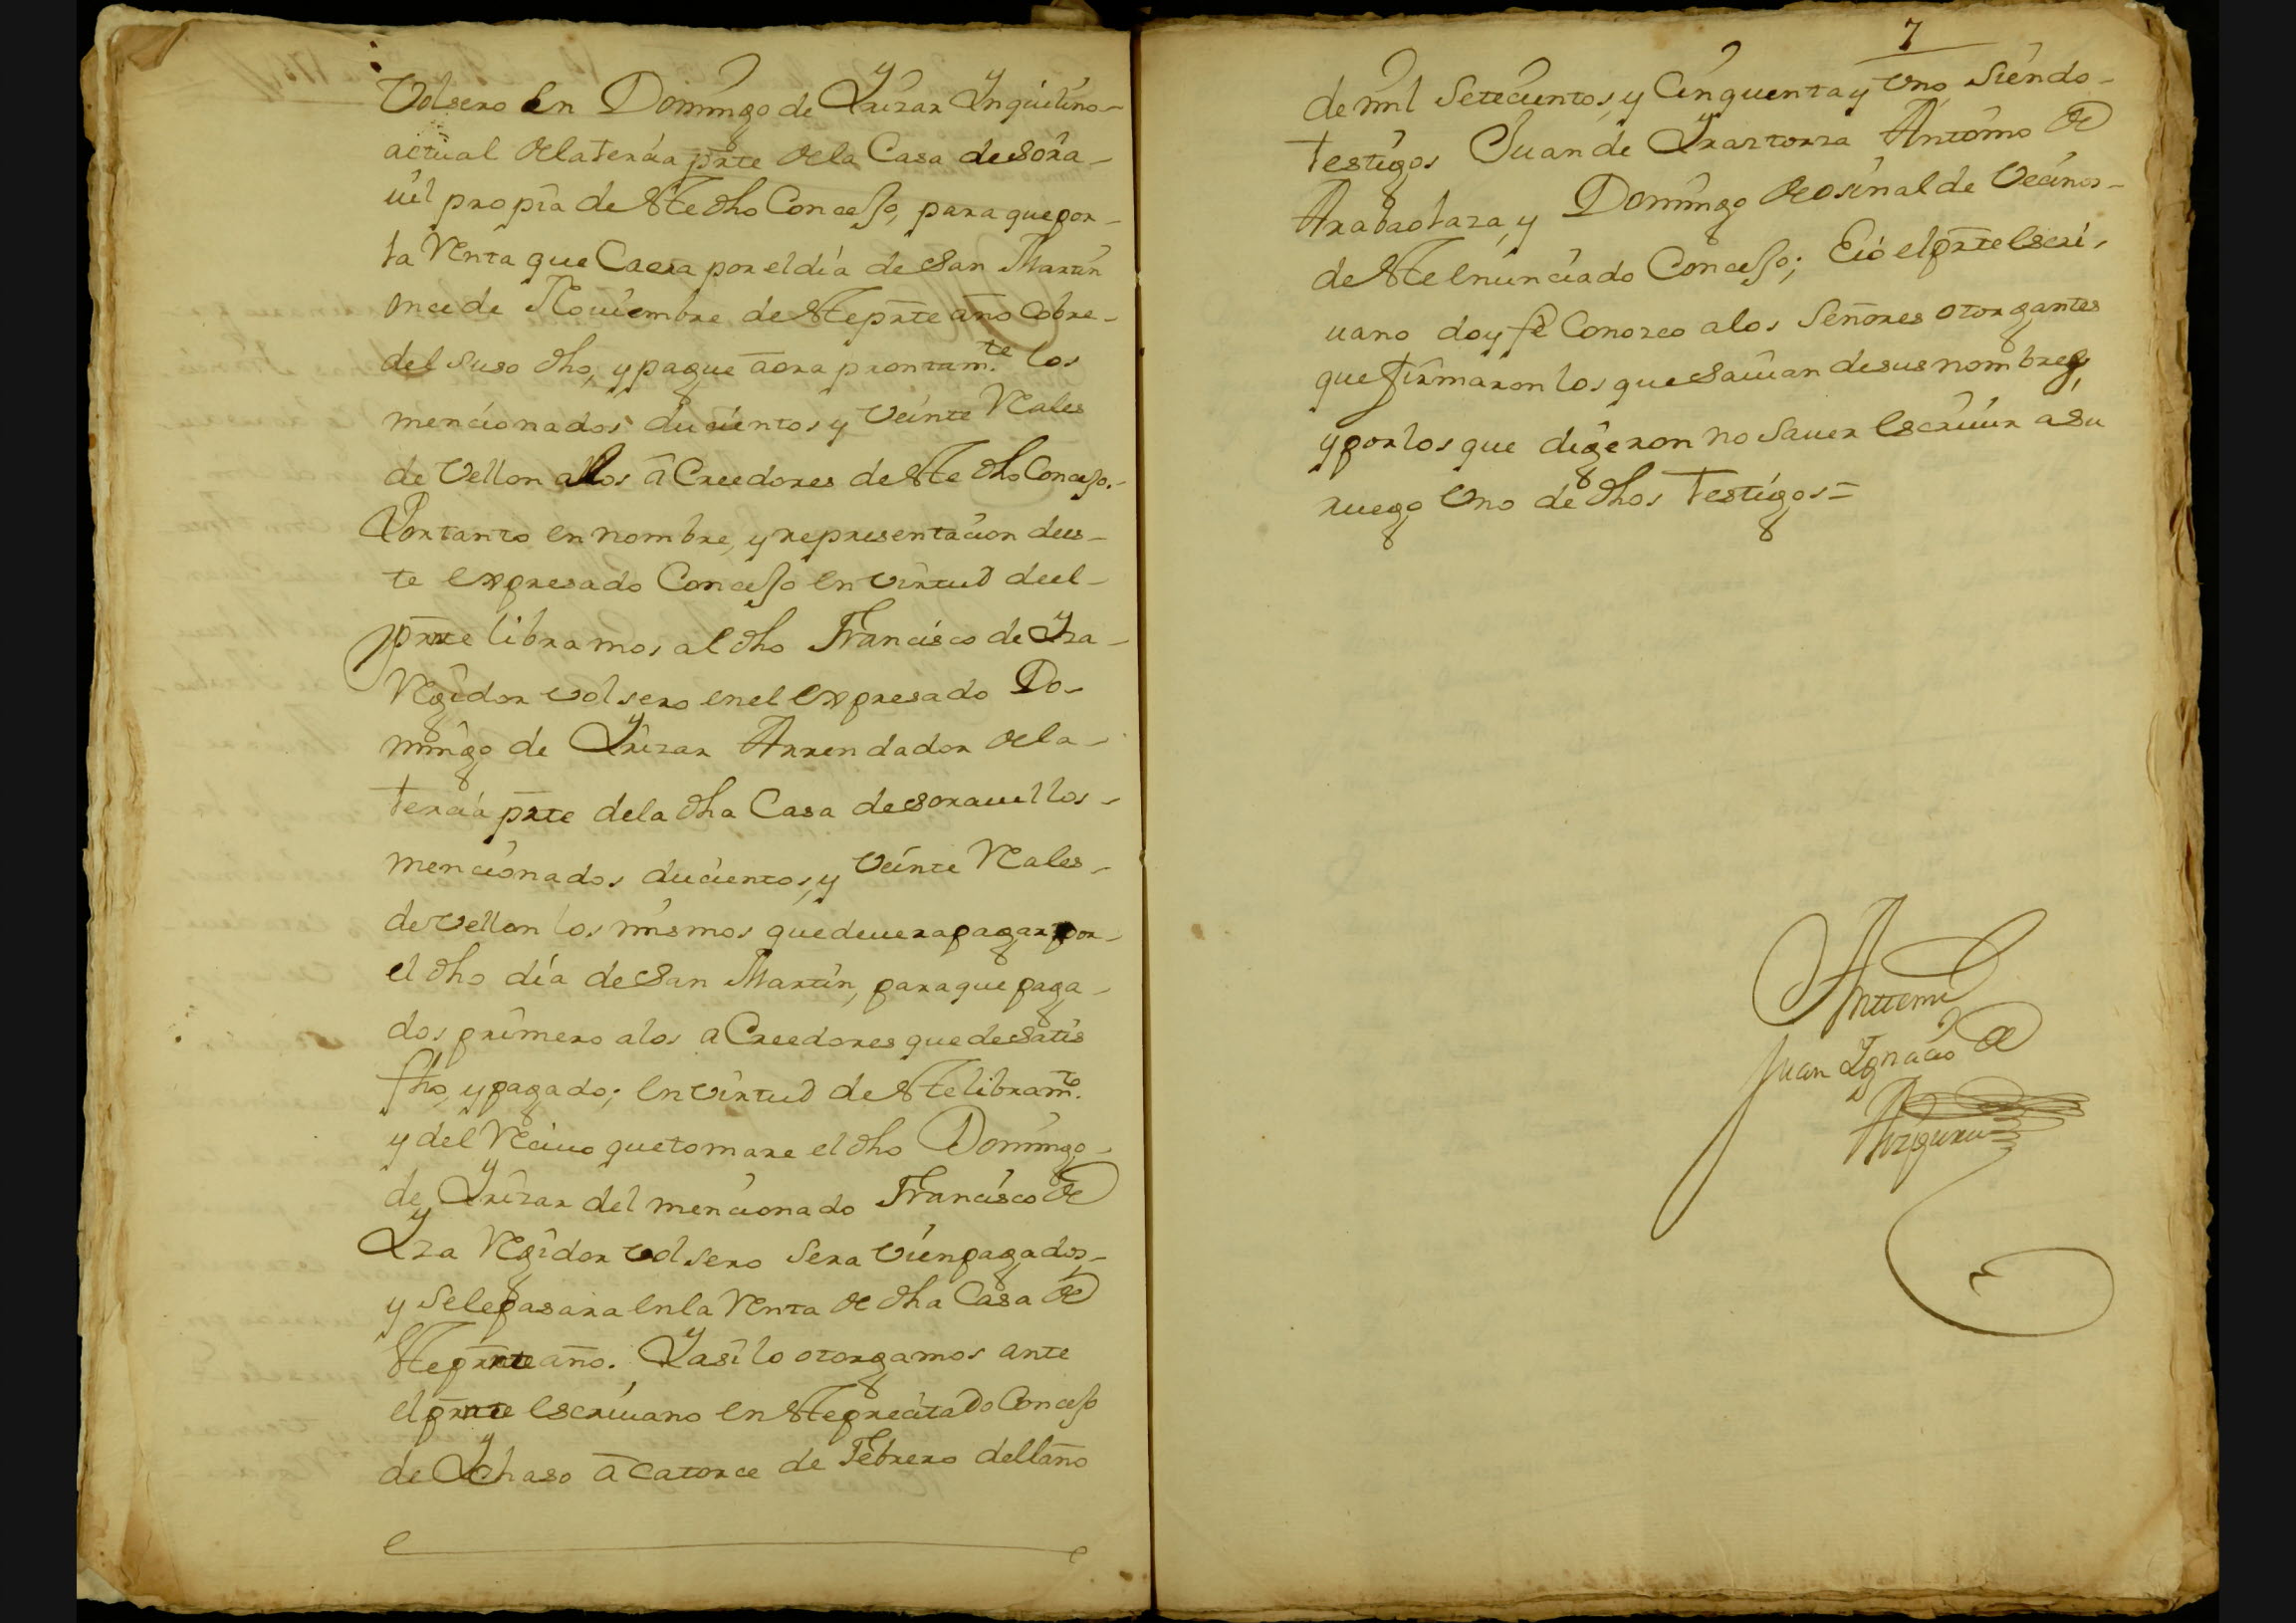 Volsero en Domingo de Yrizar Ynquilino-
actual dela tercia prte dela Casa de sora-
uil propia de Ste dho Concejo, para que por-
la Renta que Caera por el dia de San Martin
once de Nouiembre de Ste prte año Cobre-
del suso dho, y pague aora prontam.te los
mencionados ducientos y veinte Reales
de vellon a los aCreedores de Ste dho Concejo.-
Portanto en nombre, y representacion dees-
te expresado Concejo en virtud deel-
prte libramos al dho Francisco de Yza-
Regidor volsero en el expresado Do-
mingo de Yrizar Arrendador dela-
tercia prte dela dha Casa de soraueil los-
mencionados ducientos, y veinte Reales-
de vellon los mismos que deuera pagar por-
el dho dia de San Martin, para que paga-
dos primero alos aCreedores quede satis
fho, y pagado; en virtud de Ste libram.to
y del Reciuo que tomare el dho Domingo-
de Yrizar del mencionado Francisco de
Yza Regidor volsero sera vien pagados,-
y se le pasara en la Renta de dha Casa de
Ste prte año. Y asi lo otorgamos ante
el prte escriuano en Ste precitado Concejo
de Ychaso a catorce de Febrero dell año
7
de mil setecientos, y Cinquenta y vno, siendo-
testigos Juan de Yraztorza Antonio de
Arabaolaza, y Domingo de osinalde vecinos-
de Ste enunciado Concejo; E io el prte escri-
uano doy fe Conozco a los Señores otorgantes
que firmaron los que sauian de sus nombres,
y por los que digeron no sauer escriuir a su
ruego vno de dhos testigos=
Antemi
Juan Ygnacio de
Aizpuru